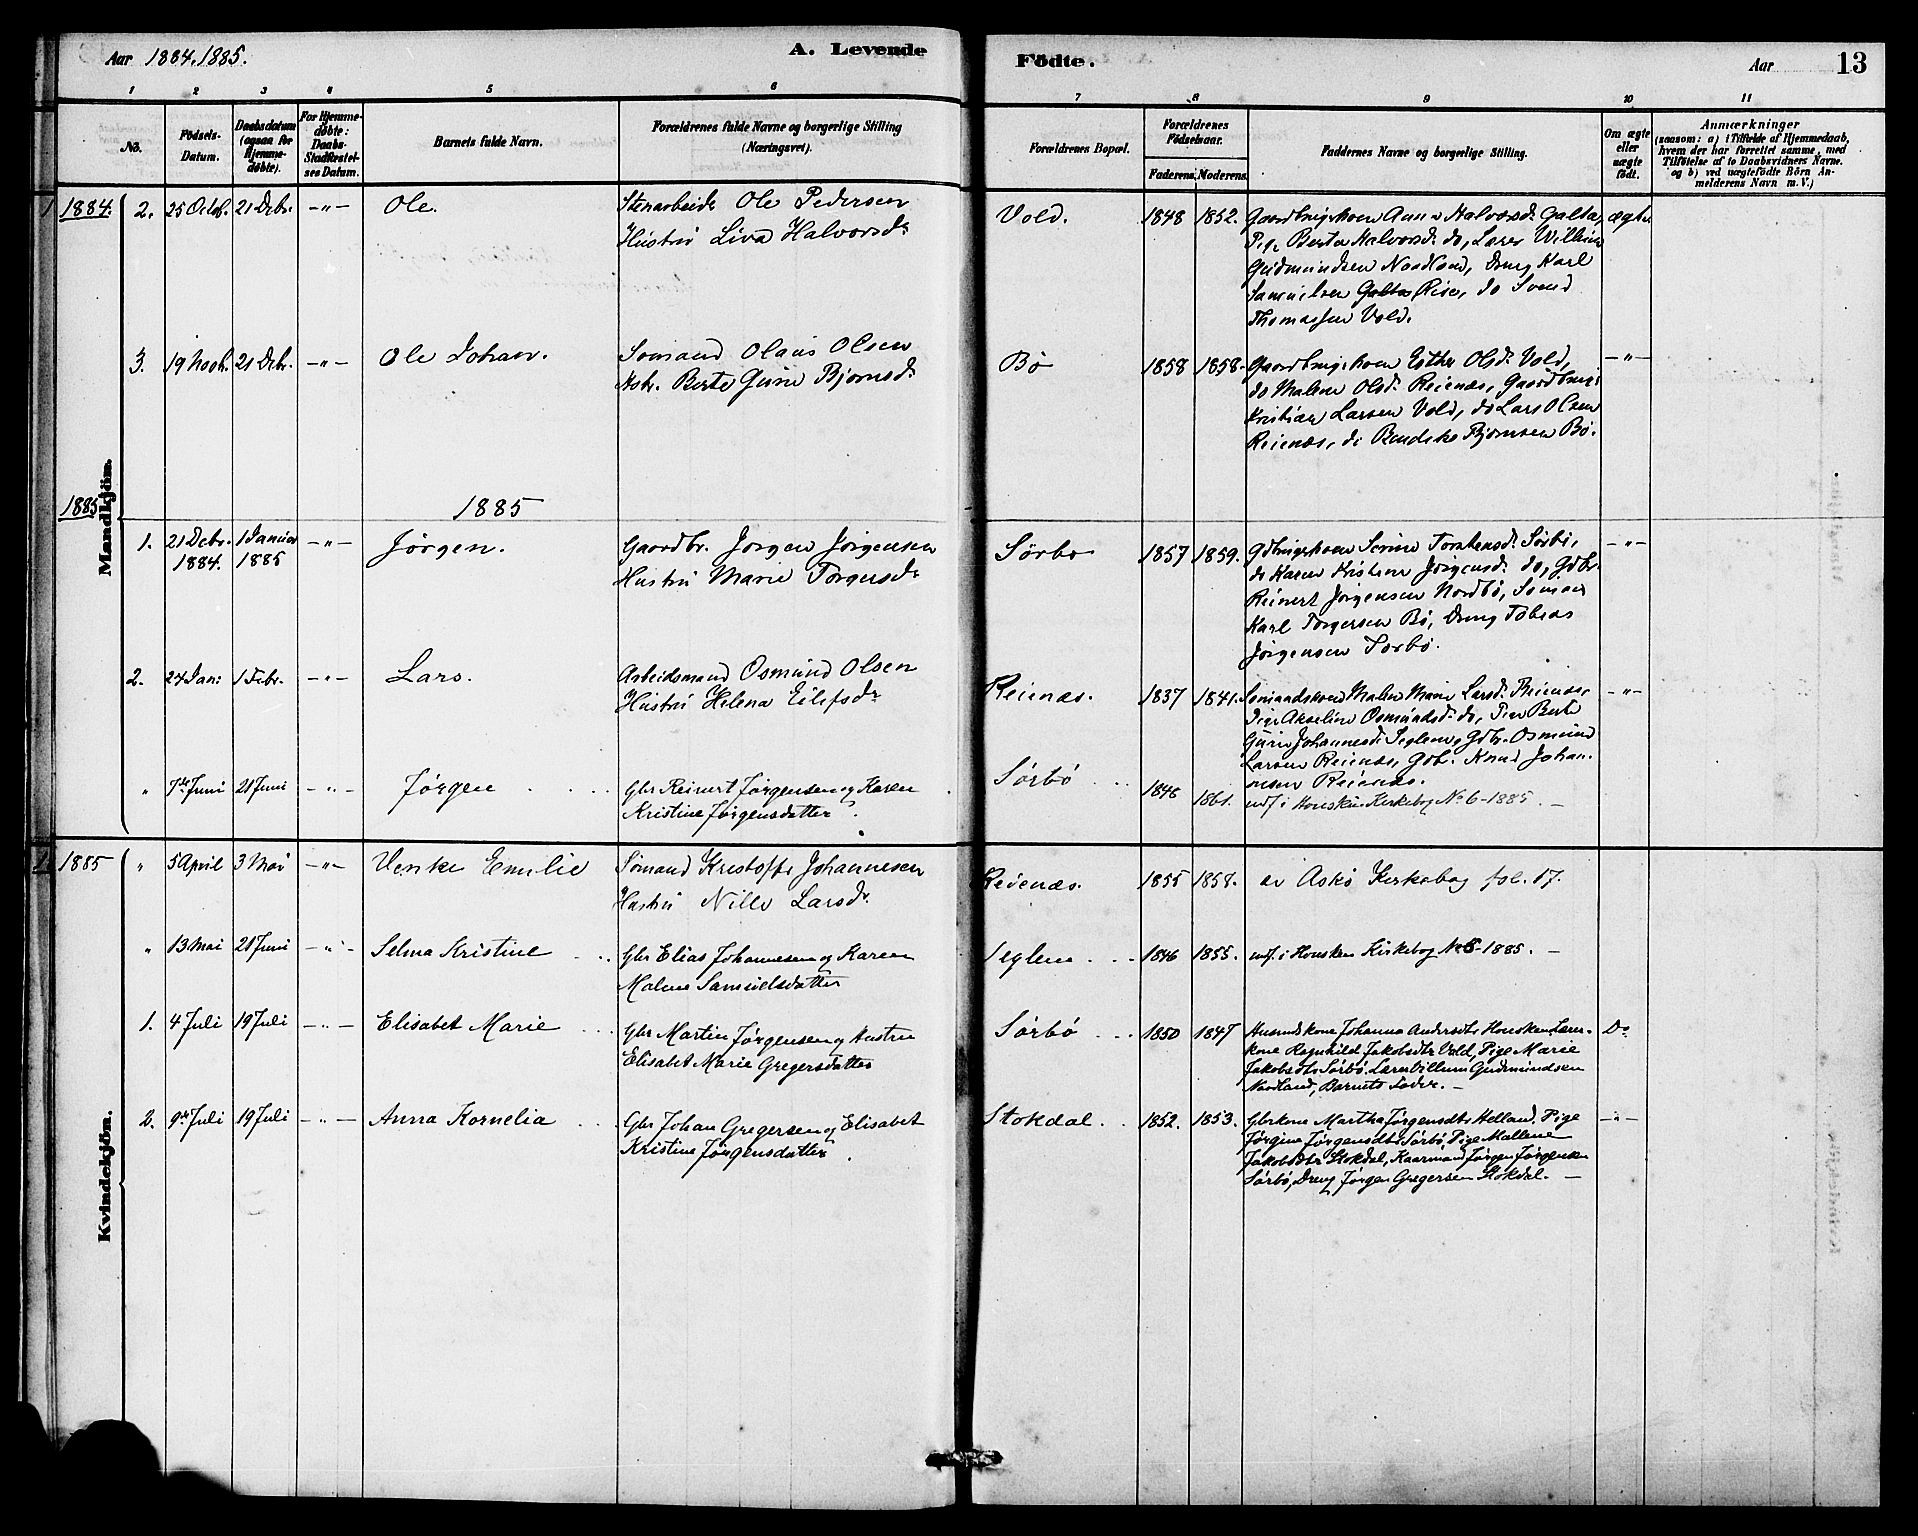 Aar 1884, 1885.
A. Levende
Fødte.
Aar
13
1 2 3 4 5 6 7 8 9 10 11
No.
Fødsels-
Datum.
Daabsdatum
(ogsaa for
Hjemme-
døbte).
For Hjemme-
døbte:
Daabs-
Stadfæstel-
ses Datum.
Barnets fulde Navn.
Forældrenes fulde Navne og borgerlige Stilling
(Næringsvei).
Forældrenes Bopæl.
Forældrenes
Fødselsaar.
Faderens. Moderens.
Faddernes Navne og borgerlige Stilling.
Om ægte
eller
uægte
født.
Anmærkninger
(saasom: a) i Tilfælde af Hjemmedaab,
hvem der har forrettet samme, med
Tilføielse af to Daabsvidners Navne.
og b) ved uægtefødte Børn An-
melderens Navn m. V.)
Mandkjön.
1884. 2. 25 Octob. 21 Debr. -"- Ole.
Stenarbeider Ole Pedersen
Hustru Liva Halvorsdr
Vold. 1848 1852.
Gaardbrugerkonen Anna Halvorsd. Galta,
Pige Berta Halvorsd. do, Lærer Willum
Gudmundsen Nordland, Dreng Karl
Samuelsen Galta Rise, do Svend
Thomassen Vold.
ægte
3. 19 Novb. 21 Debr. -"- Ole Johan.
Sømand Olaus Olsen
Hstr. Berte Gurine Bjørnsdr
Bø 1858 1858.
Gaardbrugerkonen Esther Olsd. Vold,
do Malene Olsd. Reienæs, Gaardbruger
Kristian Larsen Vold, do Lars Olsen
Reienæs, do Bendike Bjørnsen Bø.
-"-
1885
1885
1. 21 Debr. 1 Januar -"- Jørgen.
1884. 1885
Gaardbr. Jørgen Jørgensen
Hustru Marie Torgersdr
Sørbø 1857 1859.
Gdbrugerkonen Serine Torstensd. Sørbø,
do Karen Kristine Jørgensd. do, Gdbr.
Reinert Jørgensen Nordbø, Sømand
Karl Torgersen Bø, Dreng Tobias
Jørgensen Sørbø.
-"-
2. 24 Jan: 1 Febr. -"- Lars.
Arbeidsmand Osmund Olsen
Hustru Helena Eilefsdr
Reienæs. 1837 1841.
Sømandskonen Malene Marie Larsd. Reienæs,
Pige Akseline Osmundsd. do, Pige Berte
Gurine Johannesd. Seglem, Gdbr. Osmund
Larsen Reienæs, Gdb. Knud Johan-
nesen Reienæs.
-"-
" 7de Juni 21 Juni -"- Jørgen
Gbr Reinert Jørgensen og Karen
Kristine Jørgensdatter.
Sørbø 1848 1861.
indf. i Hausken Kirkebog No 6-1885. -
Kvindekjön.
1885 " 5 April 3 Mai -"- Venke Emilie
Sømand Kristoffer Johannesen
Hustru Nille Larsdr.
Reienæs. 1855 1858.
av Askø Kirkebog fol. 17.
" 13 Mai 21 Juni -"- Selma Kristine
Gbr Elias Johannesen og Karen
Malene Samuelsdatter
Seglem 1846 1855.
indf. i Hausken Kirkebog No 5-1885. -
1. 4 Juli 19 Juli -"- Elisabet Marie
Gbr Martin Jørgensen og Hustru
Elisabet Marie Gregersdatter
Sørbø 1850 1847
Husmdskone Johanna Andersdtr Hausken, Lærer-
kone Ragnhild Jakobsdtr Vold, Pige Marie
Jakobsdtr Sørbø, Lærer Villum Gudmundsen
Nordland, Barnets Fader. -
Do
2. 9de Juli 19 Juli -"- Anna Kornelia
Gbr Johan Gregersen og Elisabet
Kristine Jørgensdatter.
Stokdal 1852. 1853.
Gbrkone Martha Jørgensdtr Helland, Pige
Jørgine Jørgensdtr Sørbø, Pige Mallene
Jakobsdtr Stokdal, Kaarmand Jørgen Jørgensen
Sørbø, Dreng Jørgen Gregersen Stokdal. -
-"-